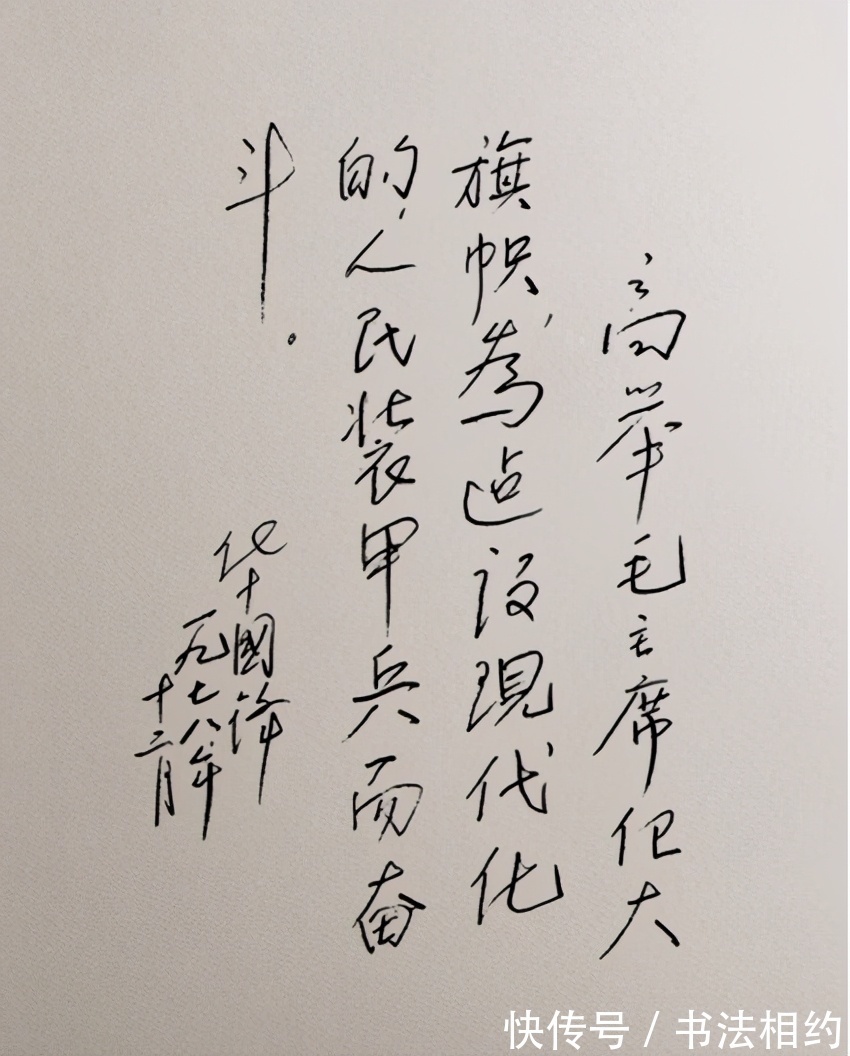 高举毛主席伟大
旗帜,為迠设現代化
的人民装甲兵而奋
斗.
华國锋
一九七八年
十二月
快传号 / 书法相约